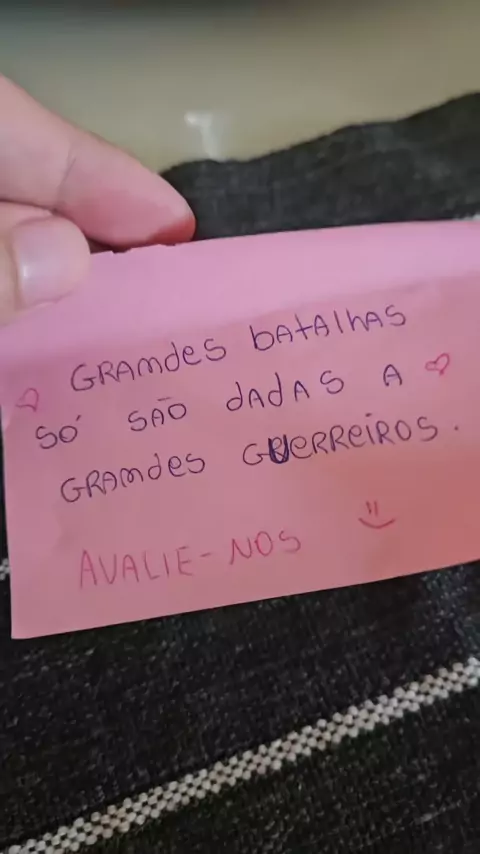 GRANdES bAtAlhAS
SÓ SÃO dAdAS A
GRANdES GUERREIROS.
AVALIE-NOS